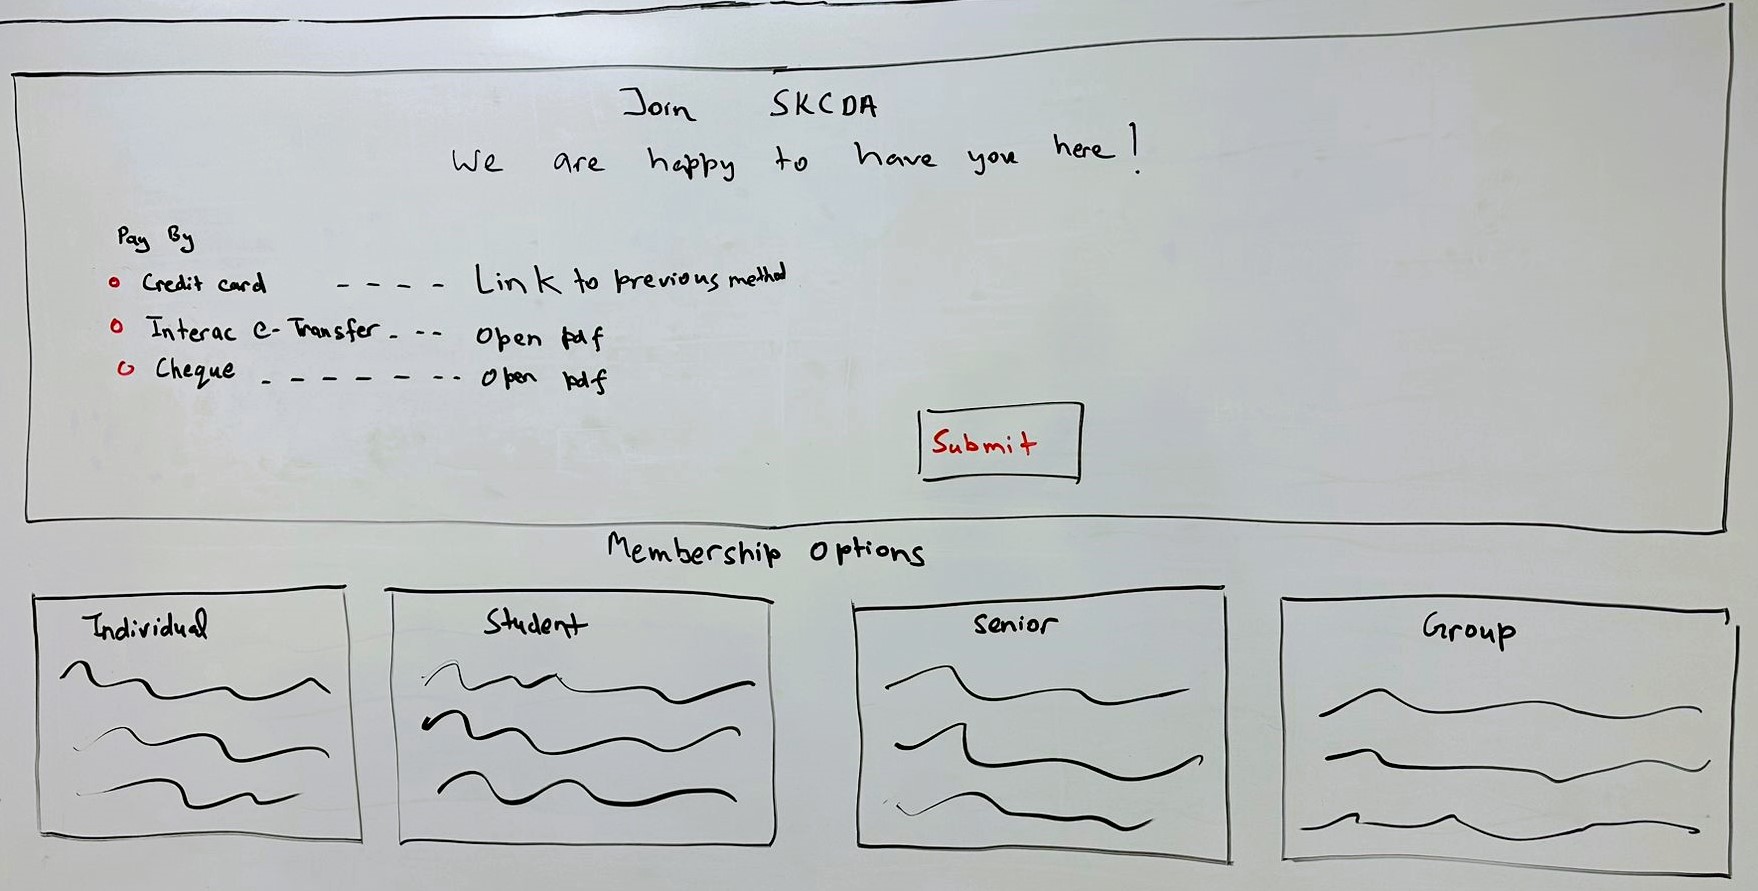 Join SKCDA
We are happy to have you here!
Pay By
Credit card - - - - Link to previous method
Interac e-Transfer - -- Open pdf
Cheque - - - - - - -- Open pdf
Submit
Membership Options
Individual
Student
Senior
Group